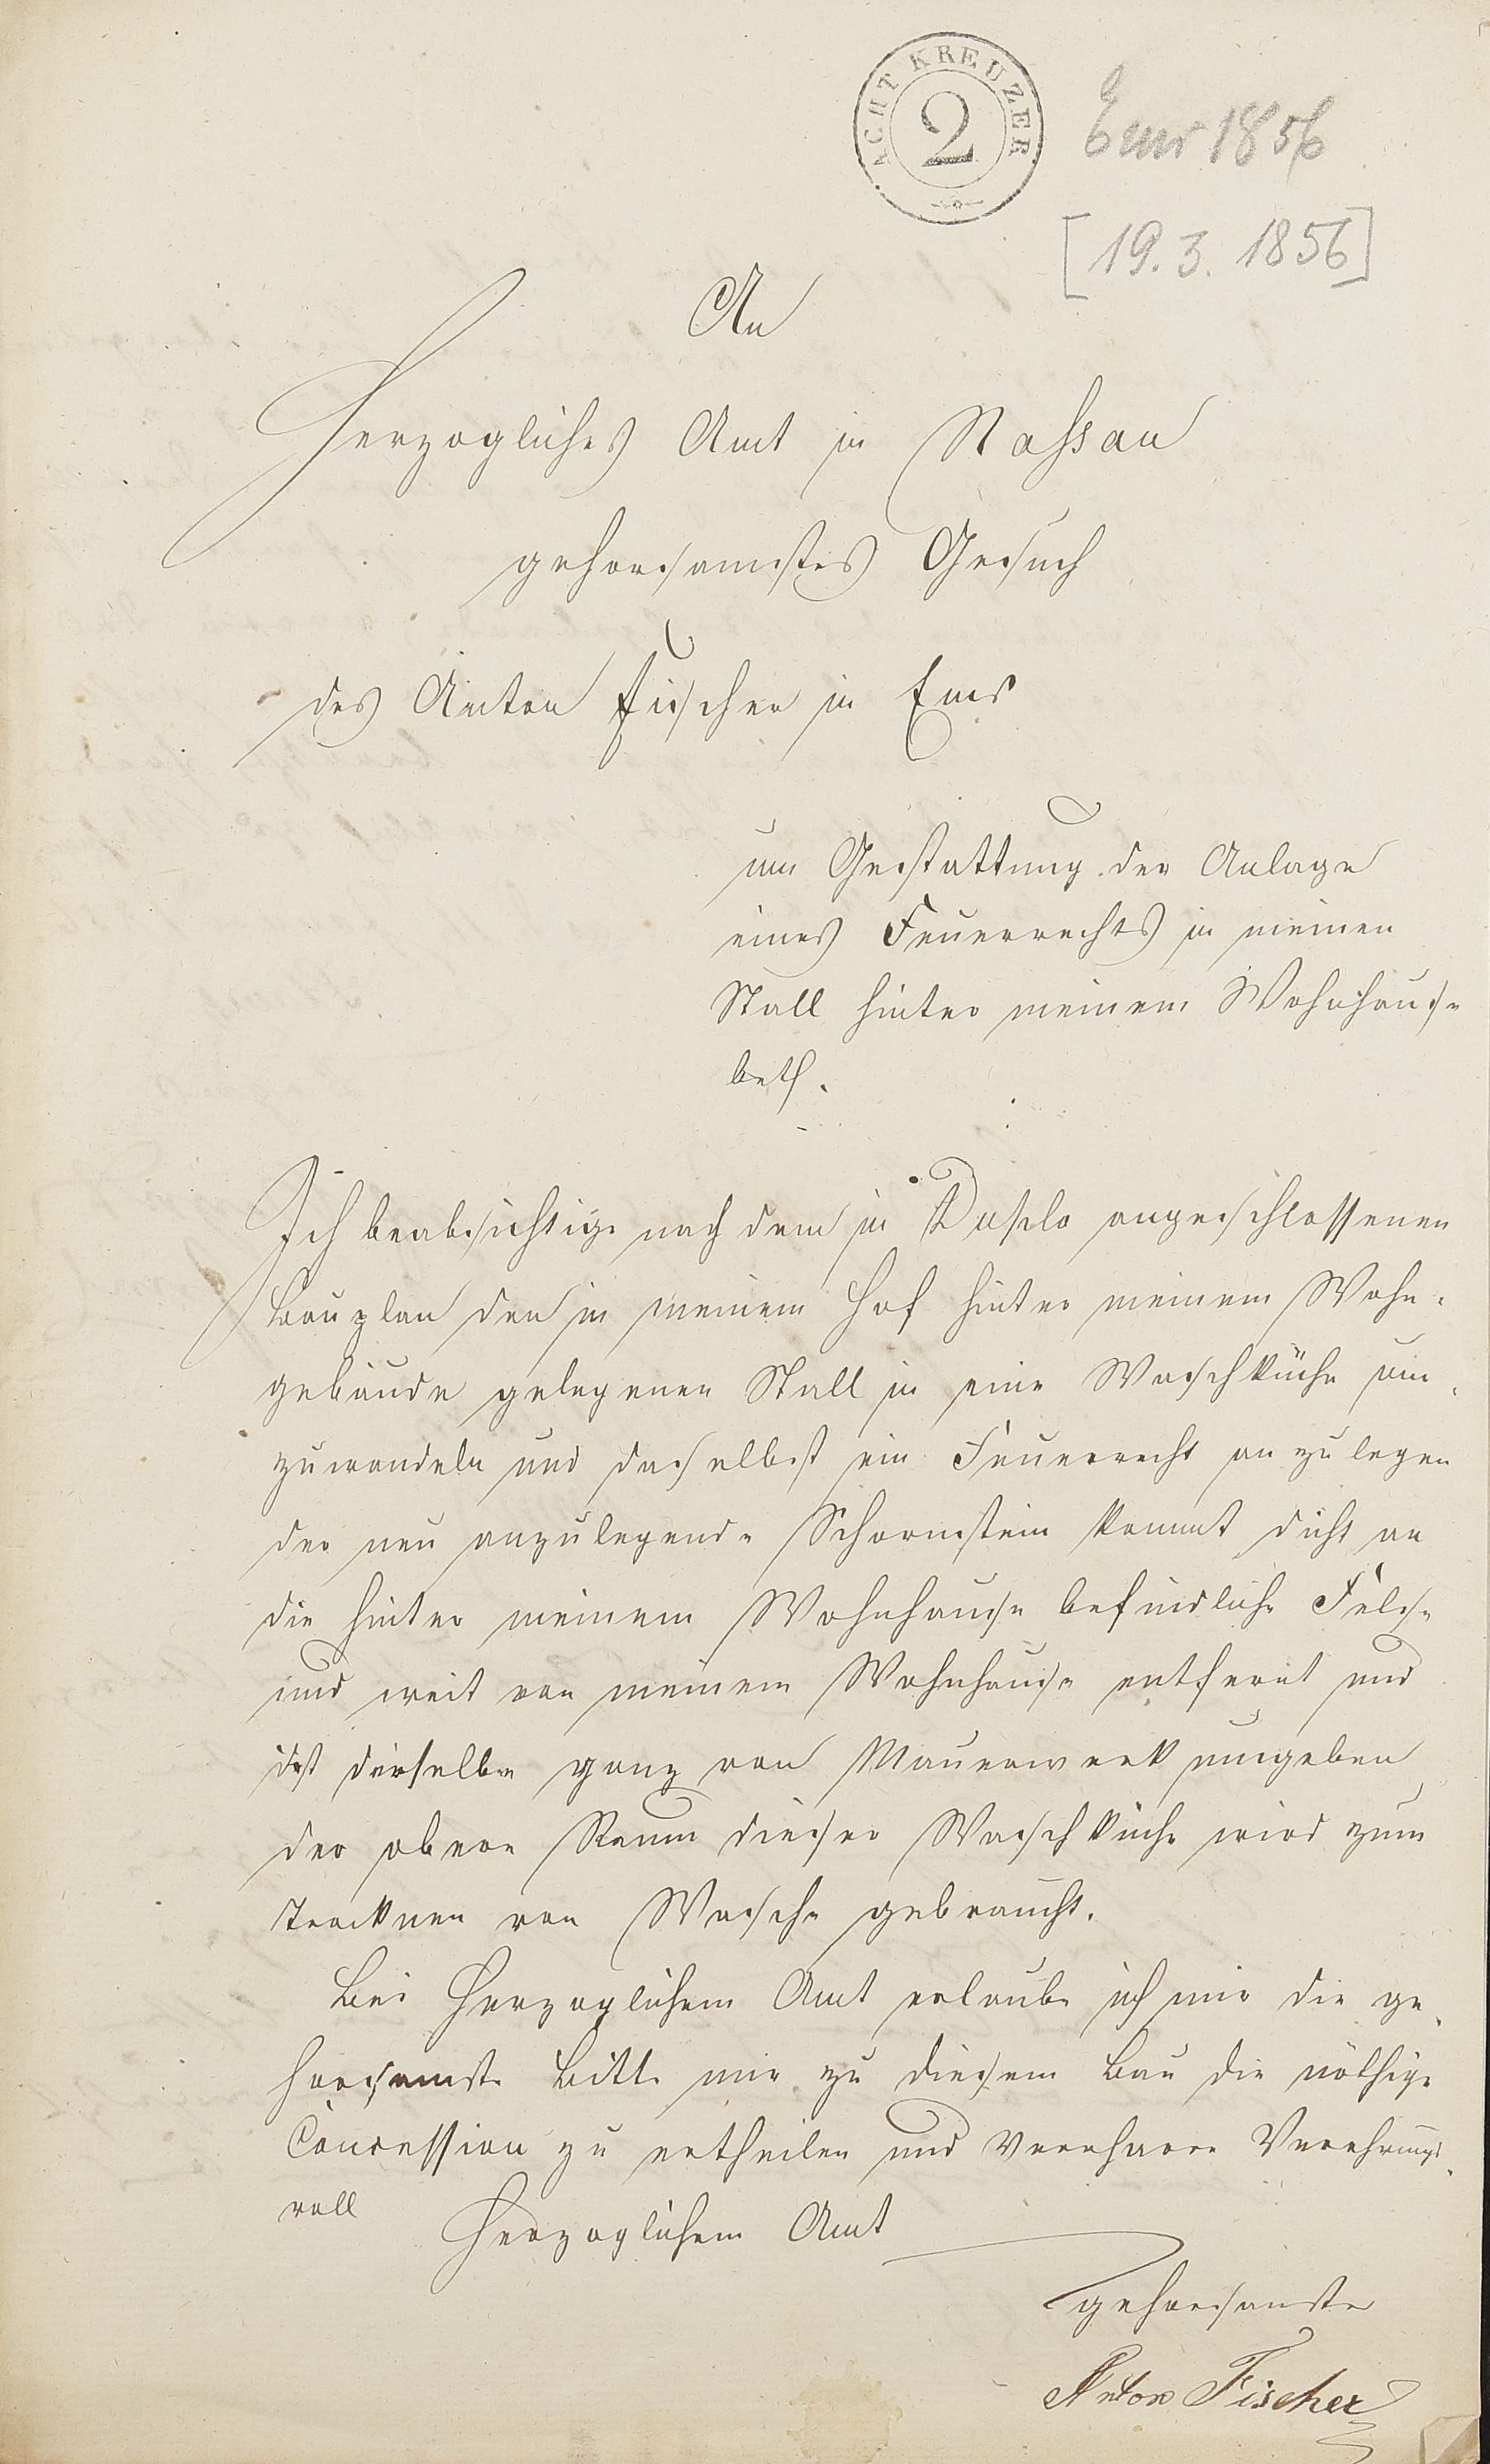 ACHT KREUZER
2
Ems 1856
[19.3.1856]
An
Herzogliches Amt in Nassau
gehorsamstes Gesuch
des Anton Fischer in Ems
um Gestattung der Anlage
eines Feuerrechts in meinen
Stall hinter meinem Wohnhause
betf.
Ich beabsichtige nach dem in Duplo angeschlossenen
Bauplan den in meinem Hof hinter meinem Wohn-
gebäude gelegenen Stall in eine Waschküche um-
zuwandeln und daselbst ein Feuerrecht anzulegen
der neu anzulegende Schornstein kommt dicht an
die hinter meinem Wohnhause befindliche Felse
und weit von meinem Wohnhause entfernt und
ist dieselbe ganz von Mauerwerk umgeben,
der obere Raum dieser Waschküche wird zum
Trocknen von Wasche gebraucht.
Bei Herzoglichem Amt erlaube ich mir die ge-
horsamste Bitte mir zu diesem Bau die nöthige
Concession zu ertheilen und verharre Verehrungs-
voll
Herzoglichem Amt
gehorsamster
Anton Fischer